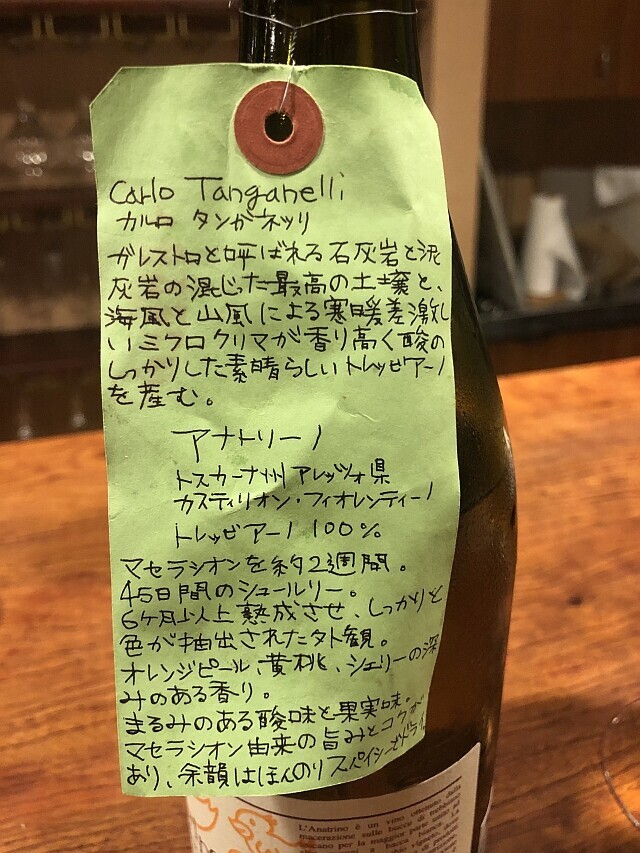 Carlo Tanganelli
カルロ タンガネッリ
ガレストロと呼ばれる石灰岩と泥
灰岩の混じった最高の土壌と、
海風と山風による寒暖差激し
いミクロクリマが香り高く酸の
しっかりした素晴らしいトレッビアーノ
を産む。
アナトリーノ
トスカーナ州 アレッツォ県
カスティリオン・フィオレンティーノ
トレッビアーノ 100%
マセラシオンを約2週間。
45日間のシュールリー。
6ヶ月以上熟成させ、しっかりと
色が抽出された外観。
オレンジピール、黄桃、シェリーの深
みのある香り。
まるみのある酸味と果実味。
マセラシオン由来の旨みとコクが
あり、余韻はほんのりスパイシーでドライ
L'Anatrino è un vino ottenuto dalla
macerazione sulle bucce di trebbiano
toscano per la maggior parte